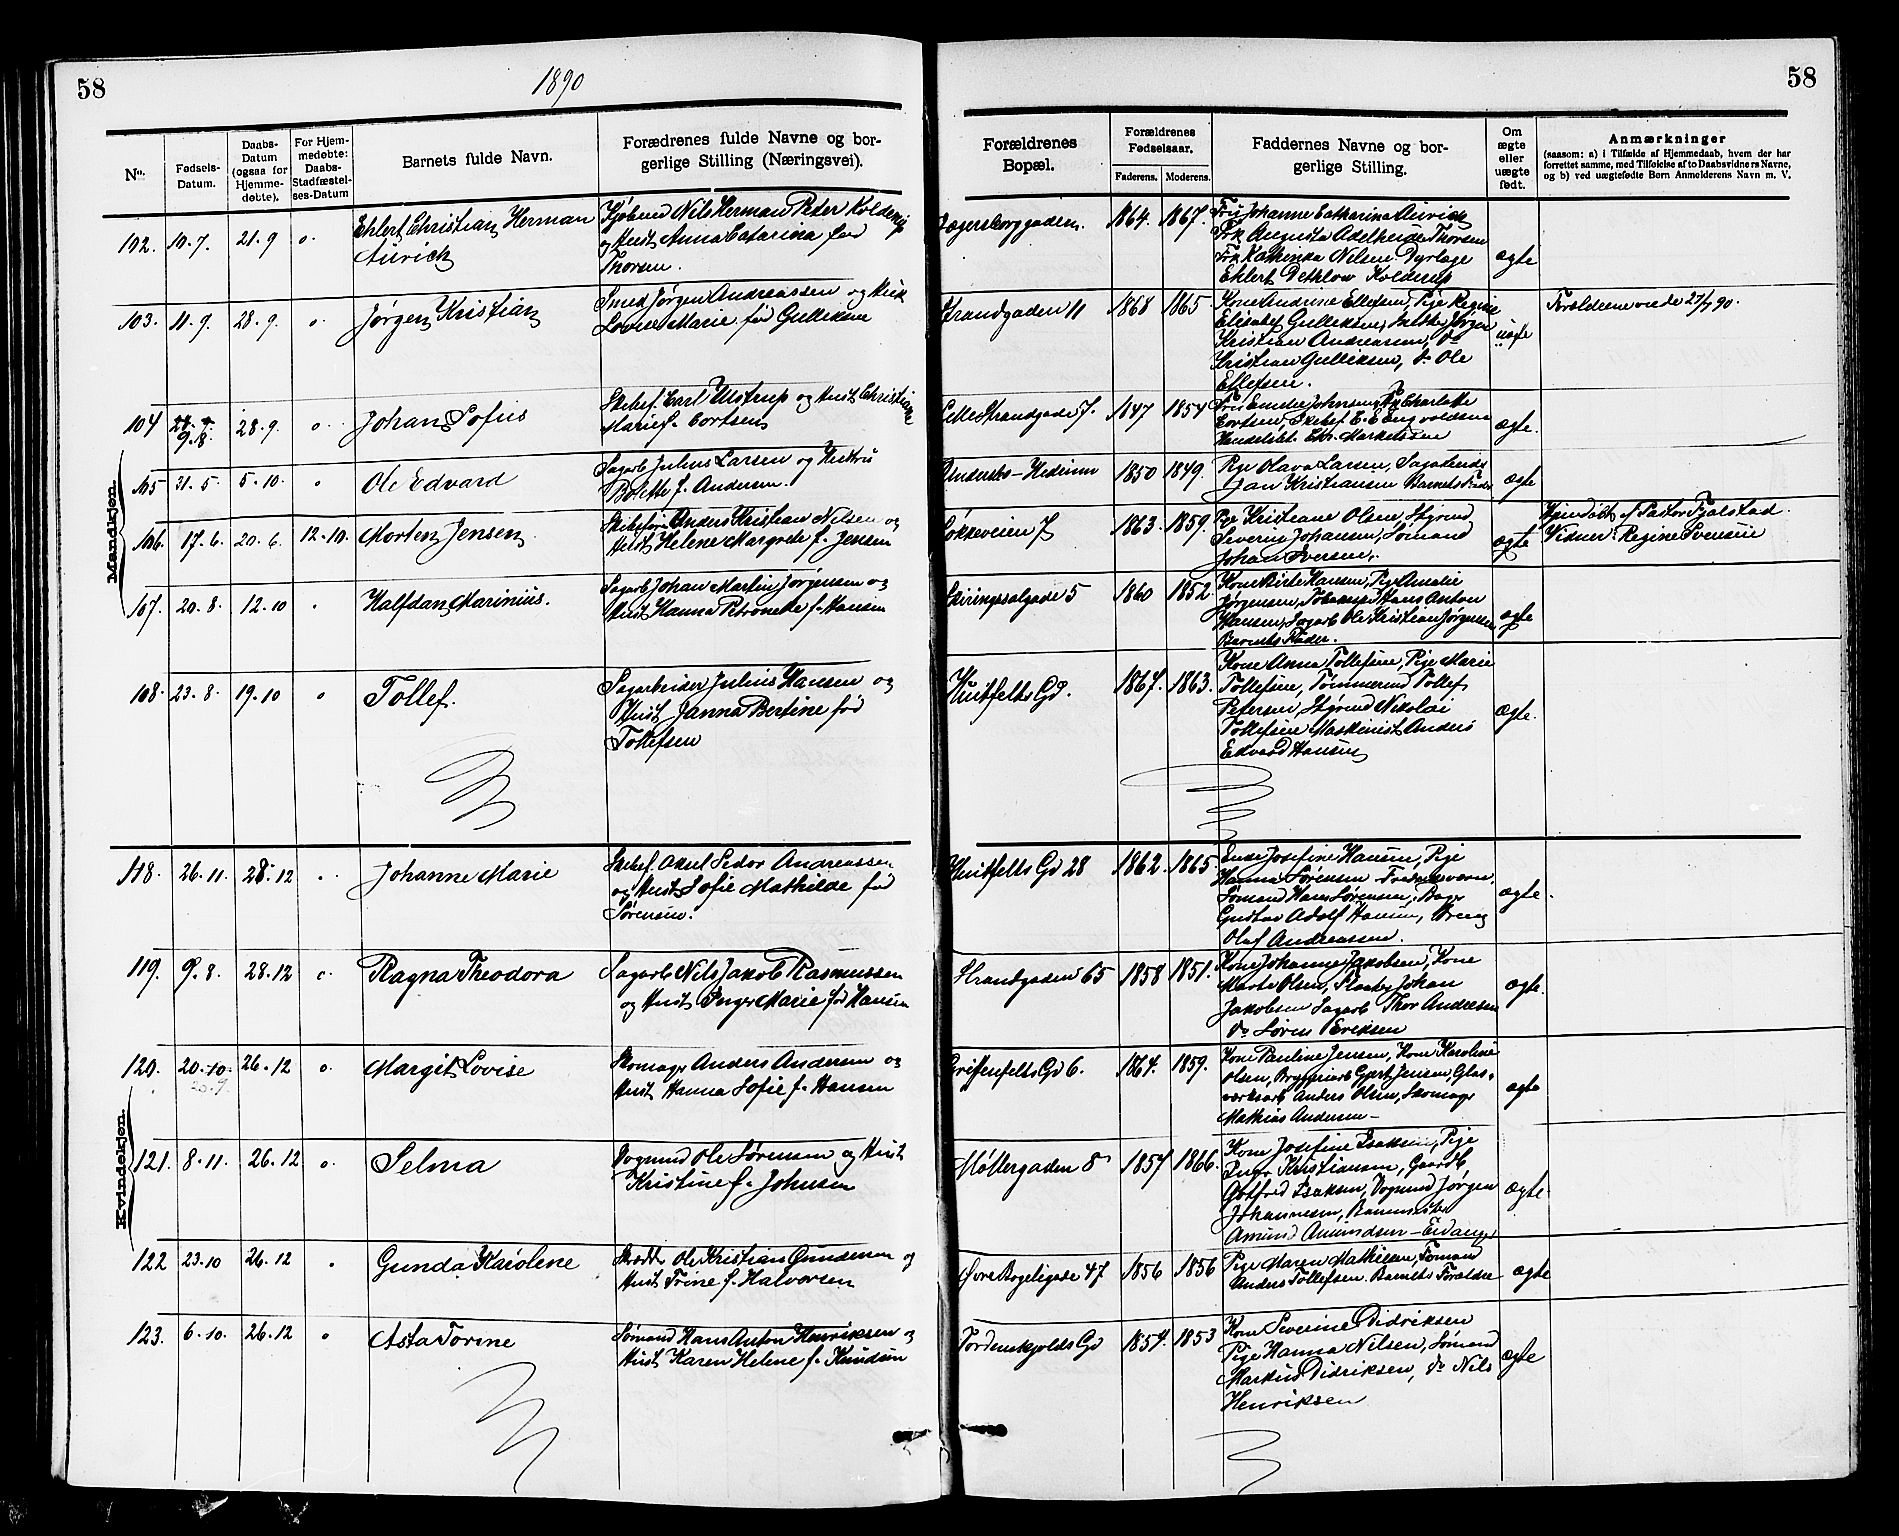 58
1890
58
No.
Fødsels-Datum.
Daabs-Datum (ogsaa for Hjemmedøbte).
For Hjemmedøbte: Daabs-Stadfæstelses-Datum
Barnets fulde Navn.
Forædrenes fulde Navne og borgerlige Stilling (Næringsvei).
Forældrenes Bopæl.
Forældrenes Fødselsaar.
Faderens. Moderens.
Faddernes Navne og borgerlige Stilling.
Om ægte eller uægte født.
Anmærkninger
(saasom: a) i Tilfælde af Hjemmedaab, hvem der har forrettet samme, med Tilføielse af to Daabsvidners Navne, og b) ved uægtefødte Børn Anmelderens Navn m. V.
Mandkjøn.
102. 10.7. 21.9 o. Ehlert Christian Herman
Aurich
Kjøbmd Nils Herman Peter Kolderup
og Hust Anna Catarina født
Thorsen.
Jægersborggaden. 1864. 1867.
Fru Johanne Catharina Aurich
Frk Augusta Adelheide Thorsen
Frk Kathinka Nilsen, Dyrlæge
Ehlert Dethlow Kolderup
ægte
103. 11.9. 28.9. o Jørgen Kristian
Smed Jørgen Andreassen og Hust
Lovise Marie før Gulliksen
Strandgaden 11 1868 1865
Kone Andrine Ellefsen, Pige Regine
Elisabet Gulliksen, Jørgen
Kristian Andreassen, do
Kristian Gulliksen, do Ole
Ellefsen.
uægte
Forældrene viede 27/9 90.
104 9.8. 28.9. o Johan Sofus
Skibsf. Carl Ulstrup og Hust Christiane
Marie f. Cortsen
Lille Strandgade 7. 1847 1854
Fru Emilie Johnsen, Frk Charlotte
Cortsen, Skibsf. E. Engvoldsen
Handelsbt. Chr. Markussen
ægte.
105 31.5. 5.10. o Ole Edvard
Sagarb Julius Larsen og Hustru
Bolette f. Andersen.
Hedrum 1850 1849.
Pige Olava Larsen, Sagarbeider
Jan Kristiansen Barnets Fader
ægte
106. 17.6. 20.6. 12.10. Morten Jensen
Skibsfører Anders Kristian Nilsen og
Hust Helene Margrete f. Jensen
7 1863. 1859.
Pige Kristiane Olsen, Styrmd
Severin Johansen, Sømand
Johan Iversen.
ægte
Hjemdøbt af Pastor Fjalstad.
Vidner: Regine Svensen
107. 20.8. 12.10 o Halfdan Marinius.
Sagarb Johan Martin Jørgensen og
Hust Hanna Petronette f. Hansen
Skiringssalgade 5 1860 1852
Kone Birte Hansen, Pige Amalie
Jørgensen, Hans Anton
Hansen, Sagarb Ole Kristian Jørgensen
Barnets Fader.
ægte
108. 23.8. 19.10 o Tollef.
Sagarbeider Julius Hansen og
Hust Janna Bertine før
Tollefsen
Huitfelts Gd. 1867. 1863.
Kone Anna Tollefsen, Pige Marie
Tollefsen, Tømmermd Tollef
Petersen, Styrmd Nikolai
Tollefsen Maskinist Anders
Edvard Hansen
ægte.
Kvindekjøn.
118. 26.11. 28.12 o Johanne Marie
Skibsf. Aksel Sedor Andreassen
og Hust Sofie Mathilde før
Sørensen.
Huitfelts Gd 28 1862. 1865
Enke Josefine Hansen, Pige
Hanna Sørensen Fredriksværn,
Sømand Hans Sørensen, Bager
Gustav Adolf Hansen, Dreng
Olaf Andreassen.
ægte.
119. 9.8. 28.12 o. Ragna Theodora
Sagarb Nils Jakob Rasmussen
og Hust Inger Marie før Hansen
Strandgaden 65 1858 1851.
Kone Johanne Jakobsen, Kone
Marte Olsen, Johan
Jakobsen Sagarb Thor Andresen
do Søren Eriksen
ægte.
120. 20.10. 26.12 o. Margit Lovise
20.9.
Skomagr Anders Andersen og
Hust Hanna Sofie f. Hansen
Griffenfelts Gd 6. 1864. 1859.
Kone Pauline Jensen, Kone Karoline
Olsen, Bryggeriarb Gjert Jensen, Glas-
værksarb Anders Olsen, Skomagr
Mathias Andersen —
ægte
121. 8.11. 26.12 o. Selma
Vognmd Ole Sørensen og Hust
Kristine f. Johnsen
Møllergaden 8 1857 1866.
Kone Josefine Isaksen, Pige
Inga Kristiansen, Gaardb.
Gotfred Isaksen, Vognmd Jørgen
Johannesen,
Amund Amundsen — Eidanger
ægte.
122 23.10 26.12 o Gunda Karolene
Skrædd Ole Kristian Gundersen og
Hust Trine f. Halvorsen
Øvre Bøgeligade 47 1856 1856
Pige Maren Mathisen, Sømand
Anders Tollefsen. Barnets Forældre
ægte
123. 6.10. 26.12 o Asta Torine
Sømand Hans Anton Henriksen og
Hust Karen Helene f. Knudsen
Tordenskjolds Gd 1854. 1853
Kone Severine Didriksen
Pige Hanna Nilsen, Sømand
Markus Didriksen, do Nils
Henriksen
ægte